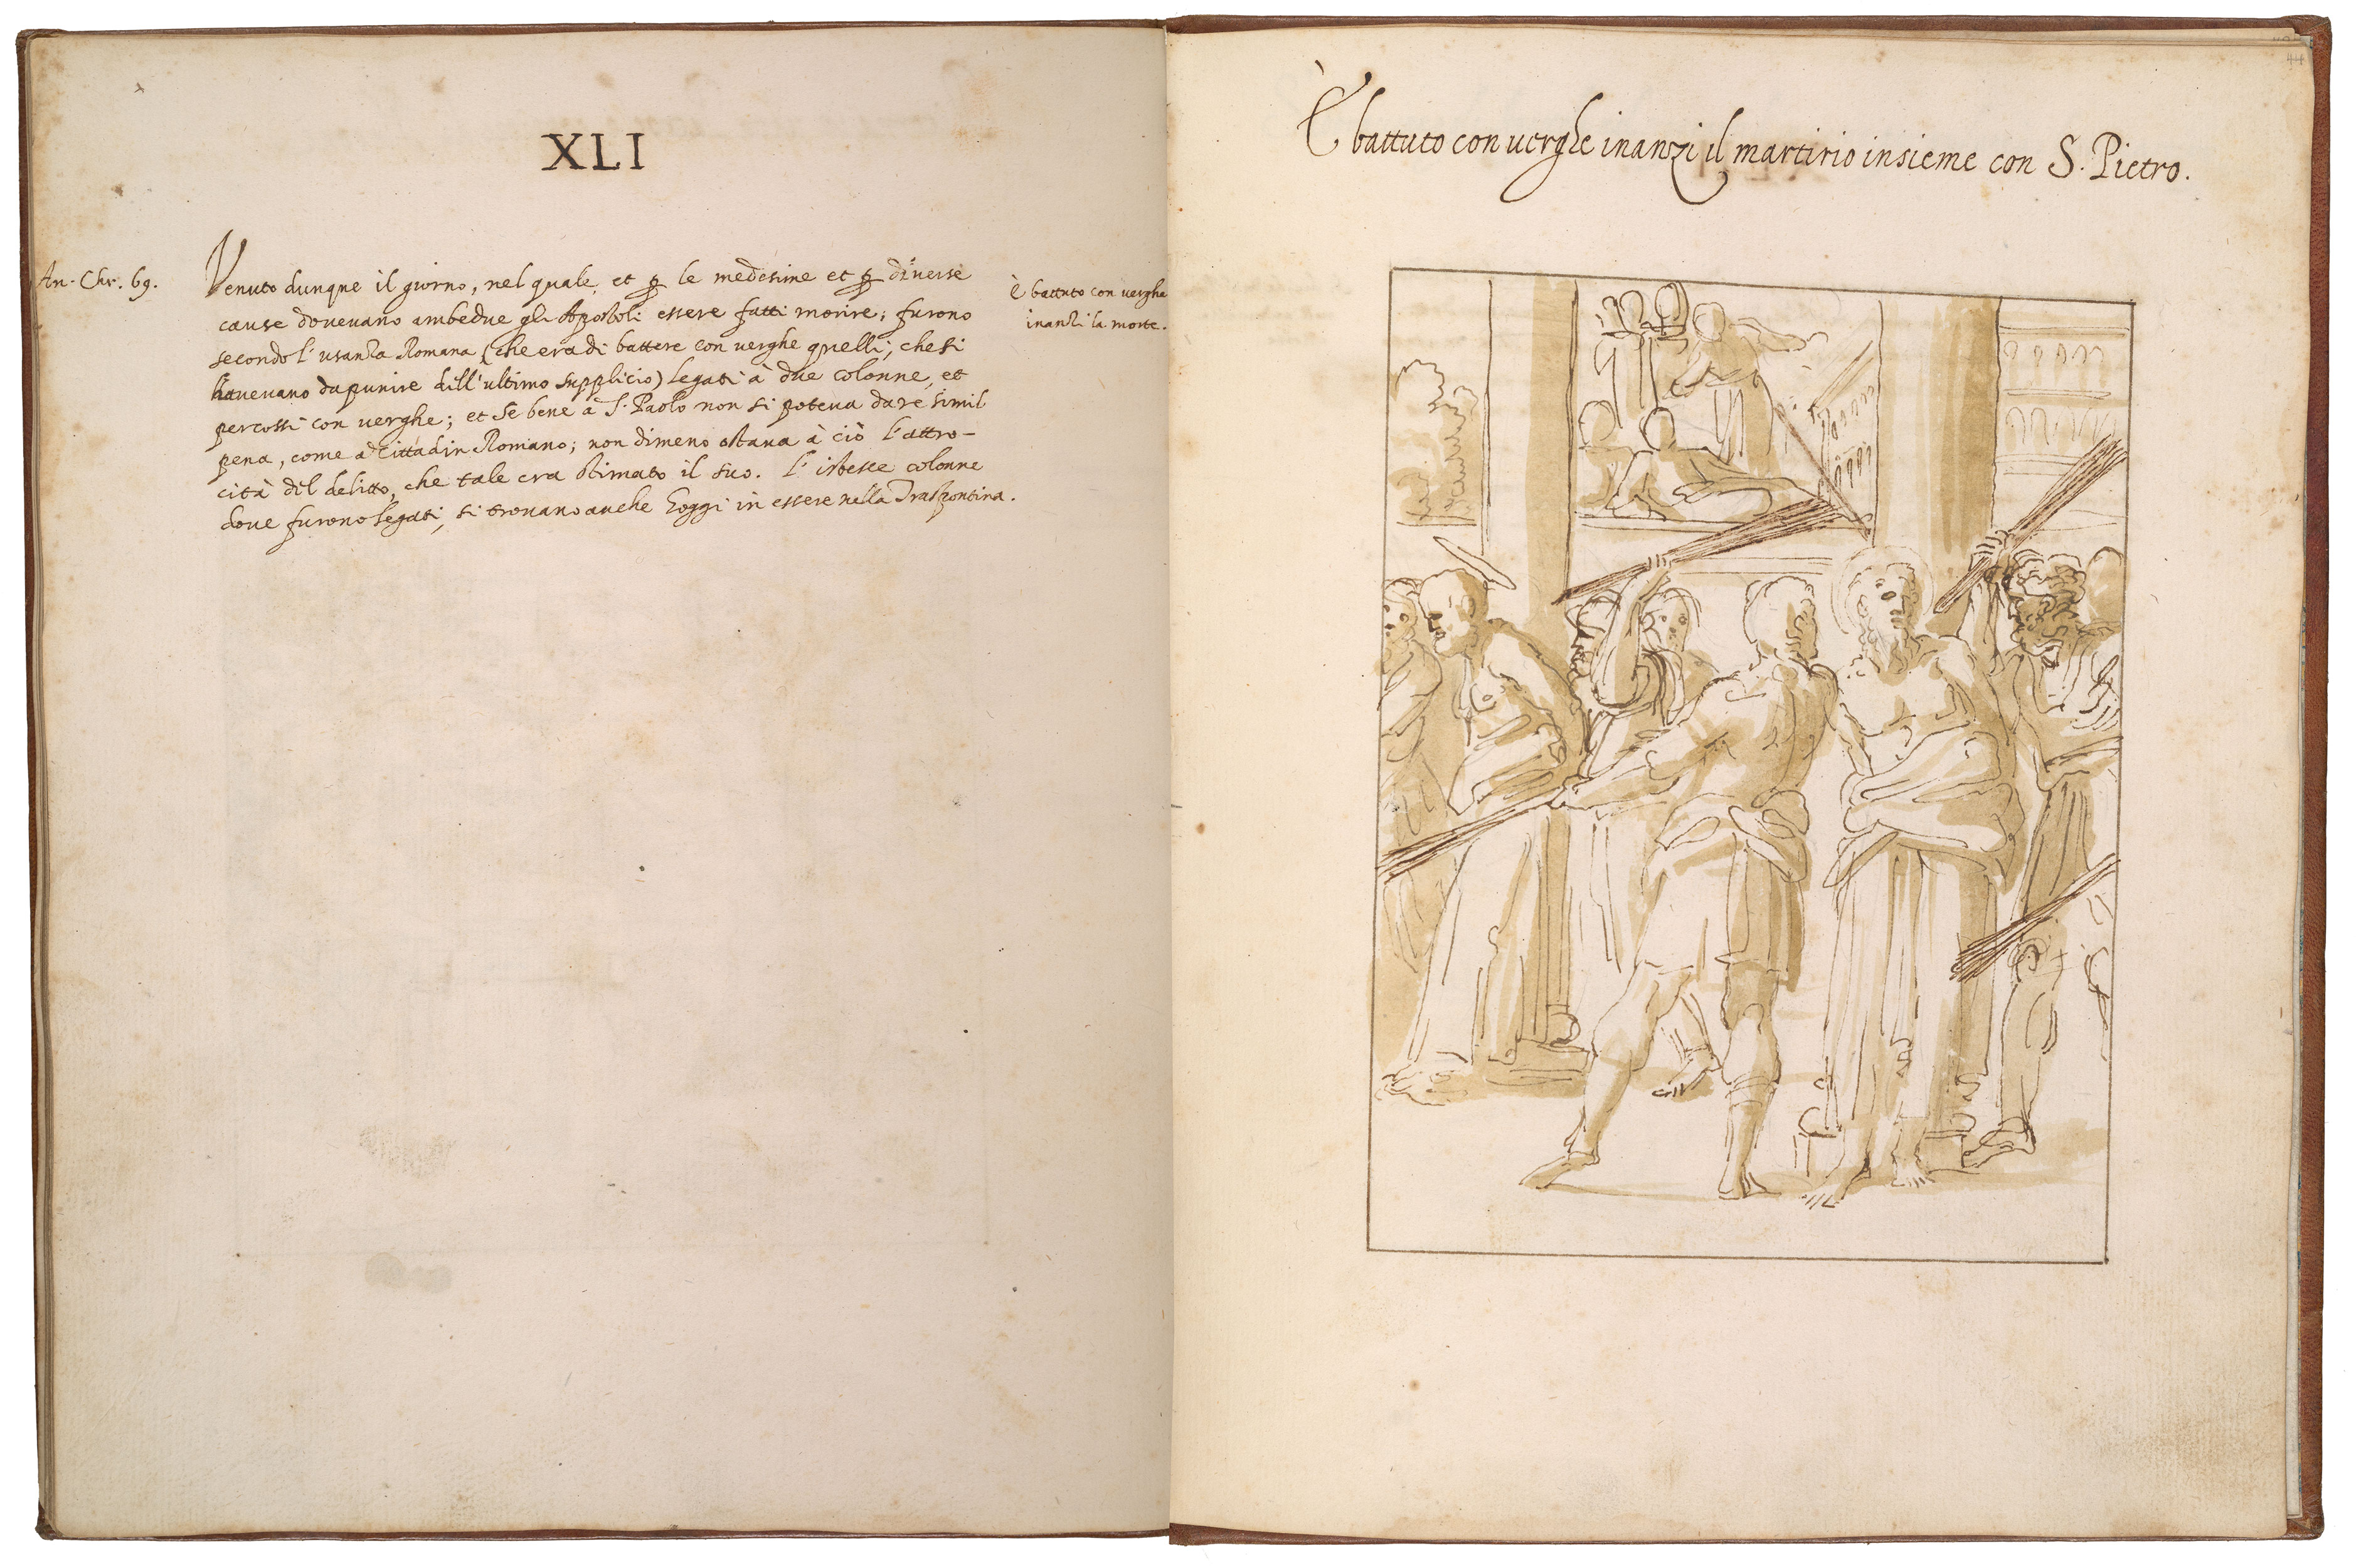 XLI
An. Chr. 69.
Venuto dunque il giorno, nel quale, et ꝑ le medesime et ꝑ diverse
cause doueuano ambedue gli Apostoli essere fatti morire; furono
secondo l'usanza Romana (che era di battere con uerghe quelli, che si
haueuano da punire dill'ultimo supplicio) legati à due colonne, et
percossi con verghe; et se bene à S. Paolo non si poteua dare simil
pena, come à Cittadin Romano; non dimeno ostaua à ciò l'attro-
cità dil delitto, che tale era stimato il suo. L'istesse colonne
doue furono legati, si trouano anche hoggi in essere nella Traspontina.
È battuto con verghe
inanzi la morte.
44
È battuto con uerghe inanzi il martirio insieme con S. Pietro.